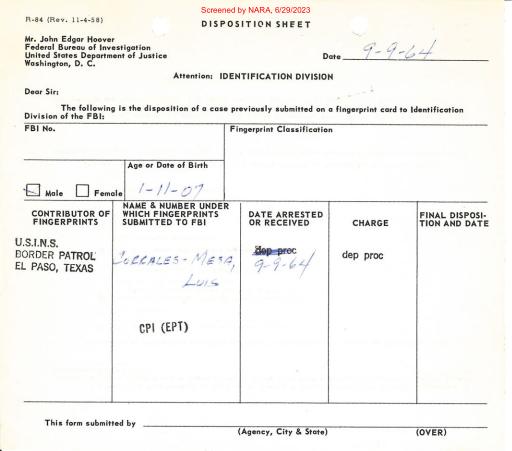 Screened by NARA, 6/29/2023
R-84 (Rev. 11-4-58)
DISPOSITION SHEET
Mr. John Edgar Hoover
Federal Bureau of Investigation
United States Department of Justice
Washington, D. C.
Date 9-9-64
Attention: IDENTIFICATION DIVISION
Dear Sir:
The following is the disposition of a case previously submitted on a fingerprint card to Identification
Division of the FBI:
FBI No.
Fingerprint Classification
Age or Date of Birth
Male Female 1-11-07
CONTRIBUTOR OF
FINGERPRINTS
NAME & NUMBER UNDER
WHICH FINGERPRINTS
SUBMITTED TO FBI
DATE ARRESTED
OR RECEIVED
CHARGE
FINAL DISPOSI-
TION AND DATE
U.S.I.N.S.
BORDER PATROL
EL PASO, TEXAS
CORRALES-MESA,
LUIS
CPI (EPT)
dep proc
9-9-64
dep proc
This form submitted by
(Agency, City & State)
(OVER)